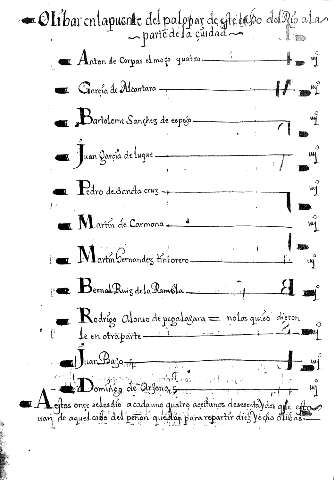 Olibar en la puente del palopar de este cabo del Rio a la
parte de la çiudad
Anton de Corpas el moço quatro iiijº
Garçia de Alcantara iiijº
Bartolome Sanchez de espejo iiijº
Juan Garçia de luque iiijº
Pedro de Sancta cruz iiijº
Martin de Carmona iiijº
Martin Fernandez tintorero iiijº
Bernal Ruiz de la Rambla iiijº
Rodrigo Alonso de pegalajara no los quiso dieron
le en otra parte
Juan Bazo iiijº
Domingo de Arjona iiijº
A estos onze se les dio a cada uno quatro azeitunos de sesenta y dos que esta
uan de aquel cabo del peñon quedan para repartir diez y ocho olibas